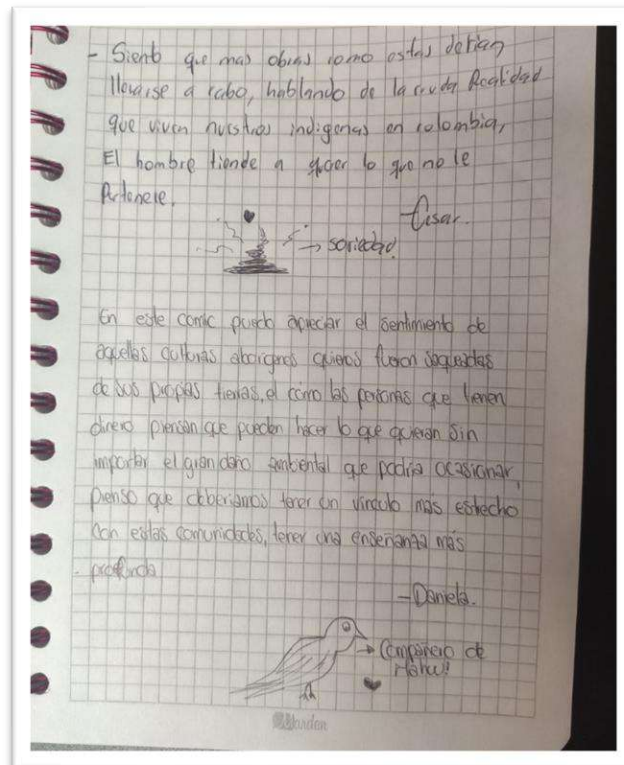 - Siento que mas obras como estas derian
llevarse a cabo, hablando de la cruda Realidad
que viven nuestros indigenas en colombia,
El hombre tiende a qrer lo que no le
Pertenece.
Cesar.
→ sociedad.
En este comic puedo apreciar el sentimiento de
aquellas culturas aborigenes quienes fueron saqueadas
de sus propias tierras, el cómo las personas que tienen
dinero piensan que pueden hacer lo que quieran sin
importar el gran daño ambiental que podria ocasionar,
pienso que deberiamos tener un vinculo más estrecho
con estas comunidades, tener una enseñanza más
profunda
- Daniela.
→ Compañero de